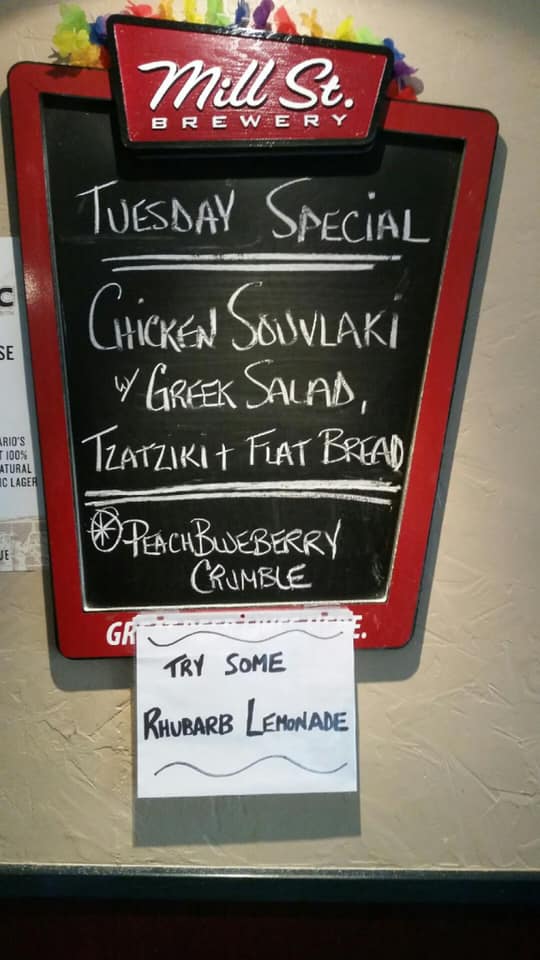 Mill St.
BREWERY
TUESDAY SPECIAL
CHICKEN SOUVLAKI
W/ GREEK SALAD,
TZATZIKI + FLAT BREAD
PEACH BLUEBERRY
CRUMBLE
TRY SOME
RHUBARB LEMONADE
C
SE
ARIO'S
T 100%
ATURAL
IC LAGER
UE